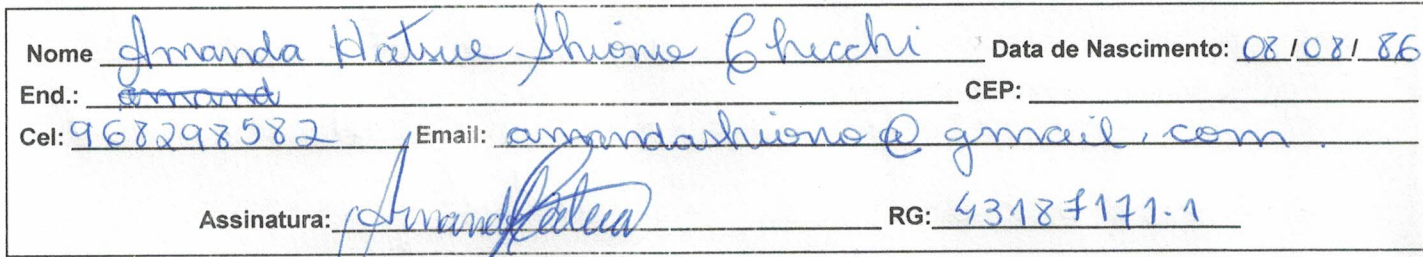 Nome Amanda Katsue Shiono Chicchi Data de Nascimento: 08/08/86
End.: amand CEP:
Cel: 968298582 Email: amandashiono@gmail.com.
Assinatura: Amanda Katsue RG: 43187171-1